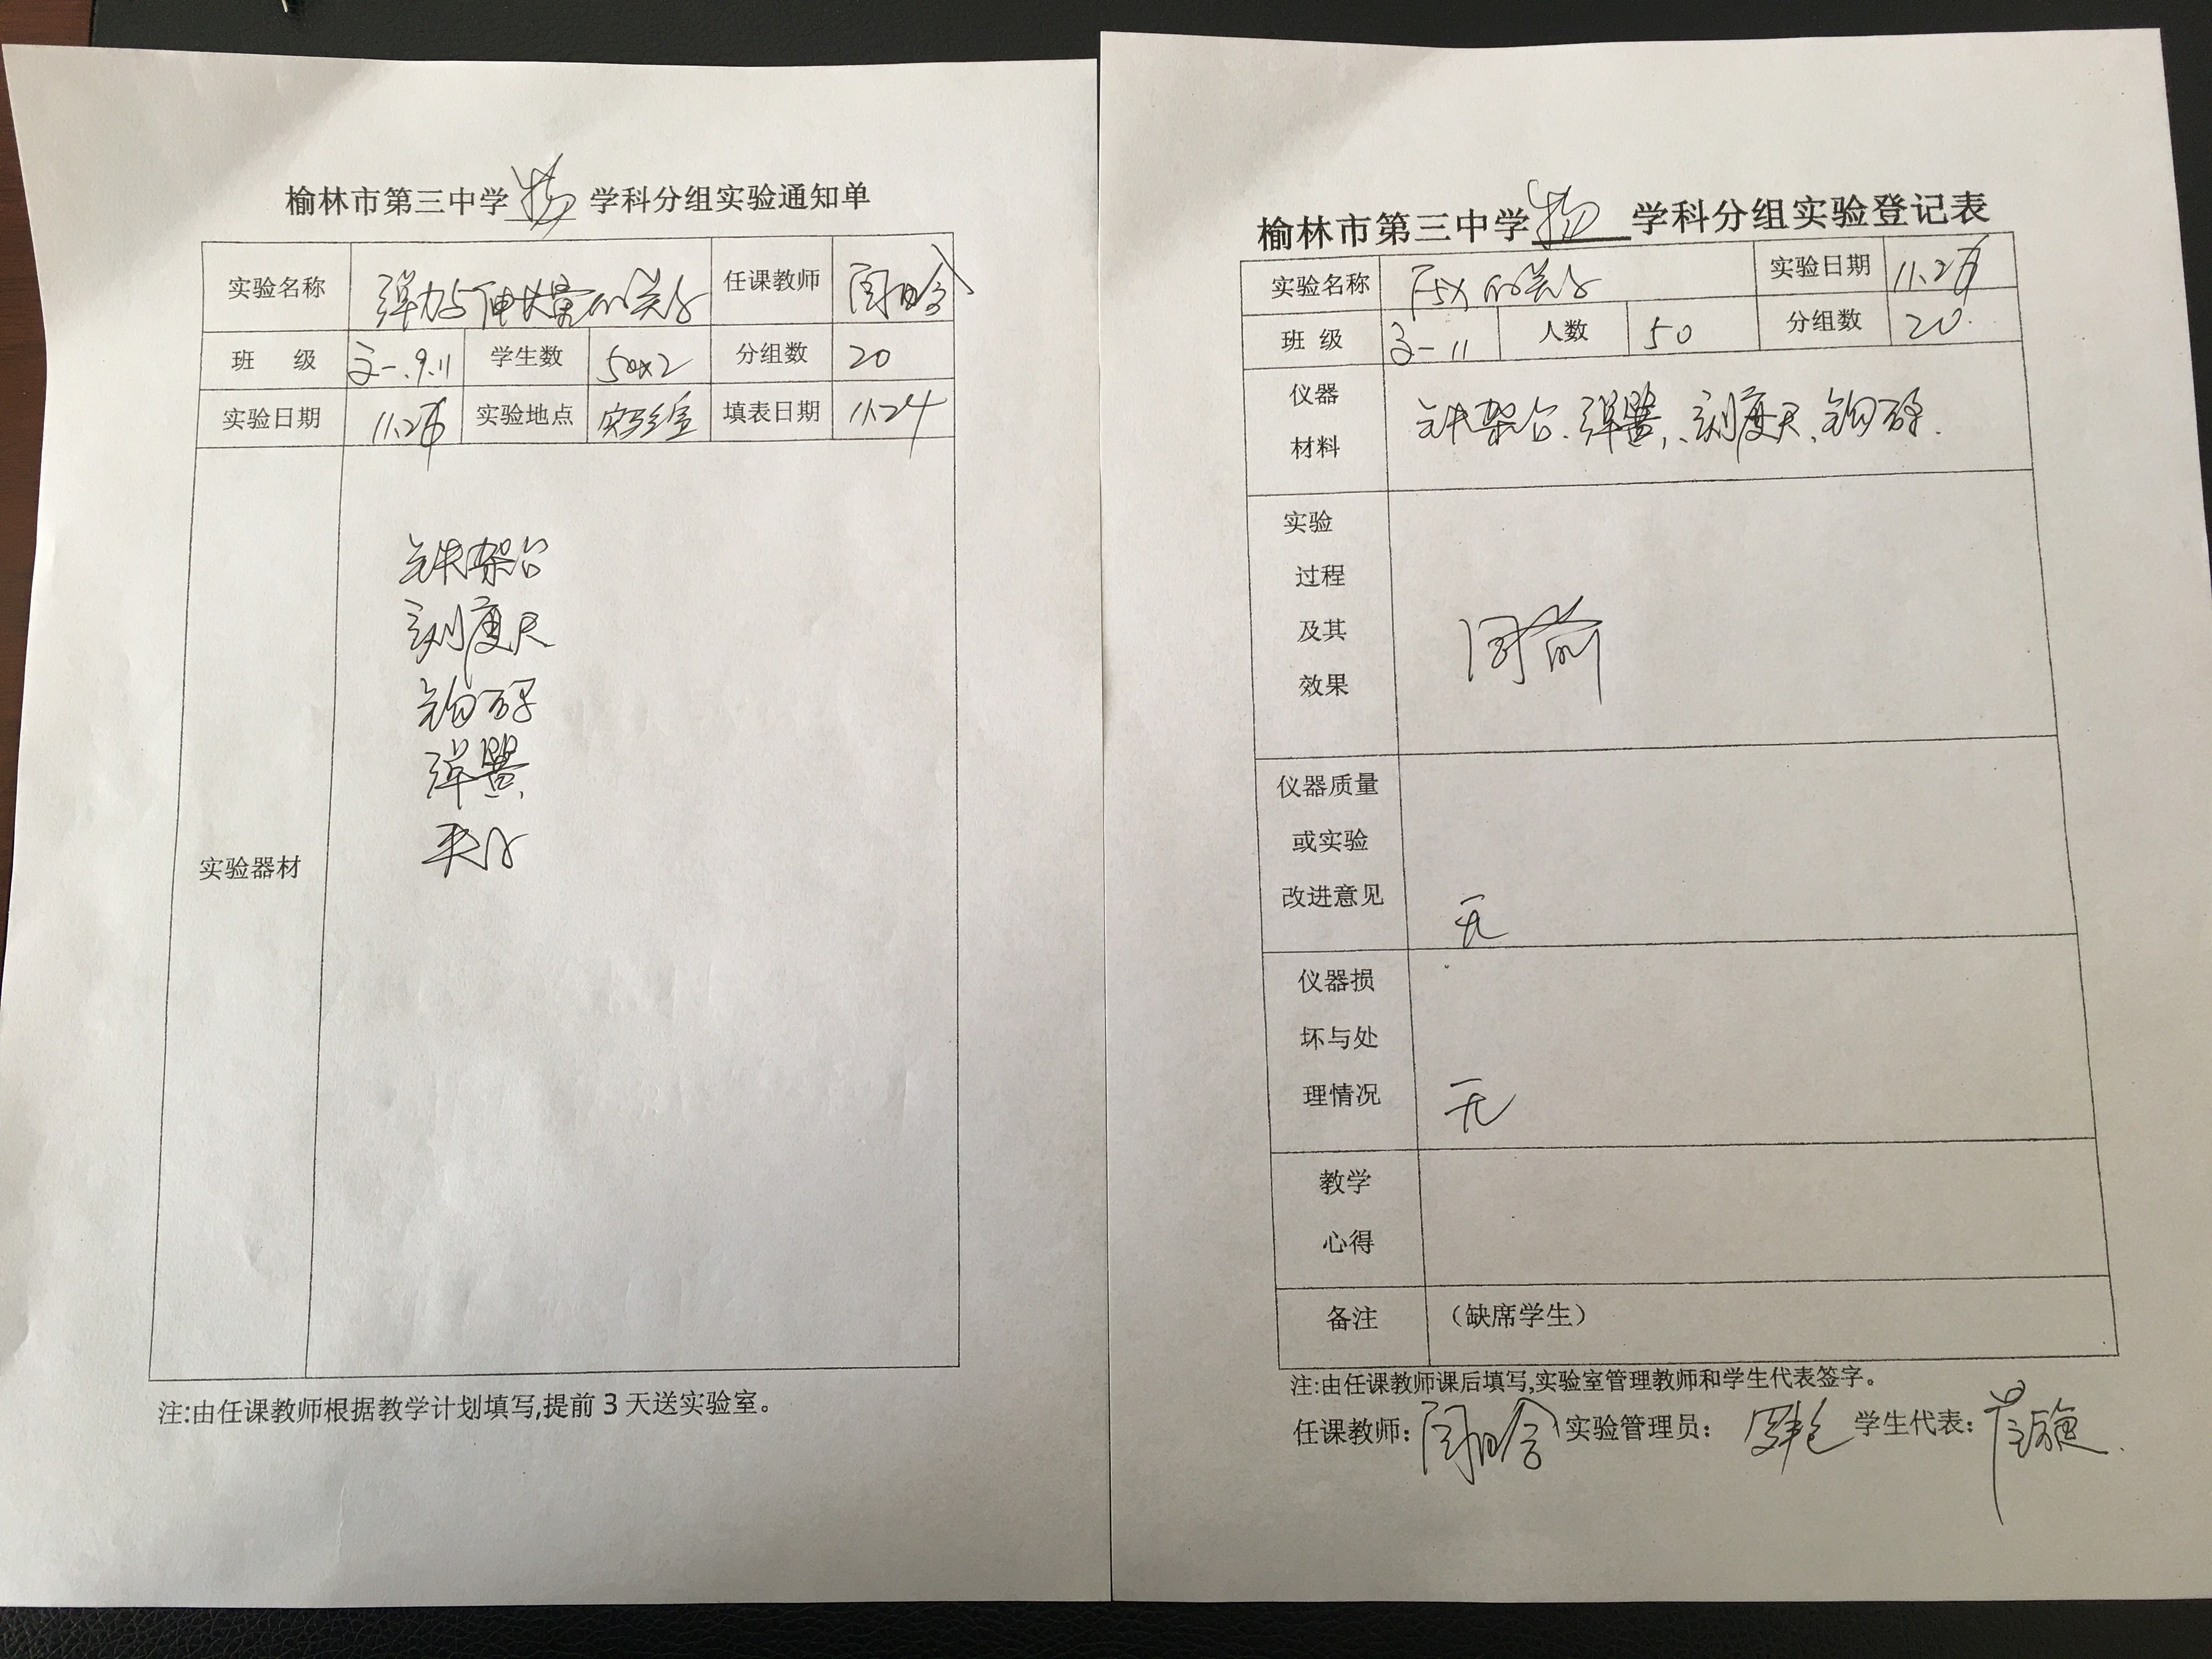 榆林市第三中学 物 学科分组实验通知单
实验名称 弹力与伸长量的关系 任课教师
班 级 高一.9.11 学生数 50x2 分组数 20
实验日期 11.26 实验地点 实验室 填表日期 11.24
实验器材
铁架台
刻度尺
钩码
弹簧
夹子
注:由任课教师根据教学计划填写,提前3天送实验室。
榆林市第三中学 物 学科分组实验登记表
实验名称 F与x的关系 实验日期 11.26
班 级 高一 11 人数 50 分组数 20.
仪器
材料
铁架台、弹簧、刻度尺、钩码.
实验
过程
及其
效果
同前
仪器质量
或实验
改进意见
无
仪器损
坏与处
理情况
无
教学
心得
备注 (缺席学生)
注:由任课教师课后填写,实验室管理教师和学生代表签字。
任课教师: 实验管理员: 学生代表: